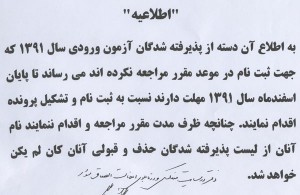 "اطلاعیه"
به اطلاع آن دسته از پذیرفته شدگان آزمون ورودی سال ۱۳۹۱ که
جهت ثبت نام در موعد مقرر مراجعه نکرده اند می رساند تا پایان
اسفندماه سال ۱۳۹۱ مهلت دارند نسبت به ثبت نام و تشکیل پرونده
اقدام نمایند. چنانچه ظرف مدت مقرر مراجعه و اقدام ننمایند نام
آنان از لیست پذیرفته شدگان حذف و قبولی آنان کان لم یکن
خواهد شد.